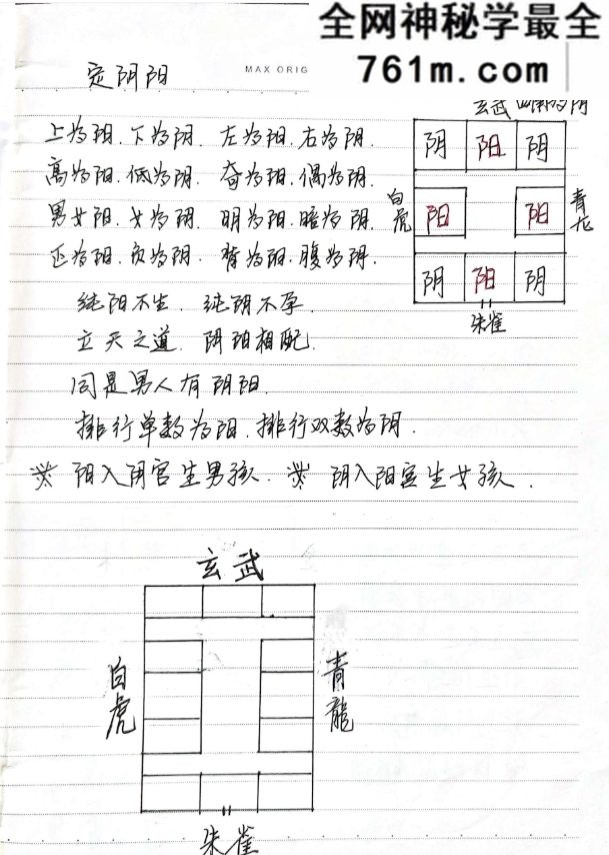 全网神秘学最全
761m.com
MAX ORIG
定阴阳
玄武 四隅为阴
上为阳.下为阴.左为阳.右为阴.
高为阳.低为阴.奇为阳.偶为阴.
男女阳.女为阴.明为阳.暗为阴.
正为阳.负为阴.背为阳.腹为阴.
阴 阳 阴
白虎 阳 阳 青龙
阴 阳 阴
朱雀
纯阳不生.纯阴不孕.
立天之道.阴阳相配.
同是男人有阴阳.
排行单数为阳.排行双数为阴.
阳入阴宫生男孩.阴入阳宫生女孩.
玄武
白虎
青龍
朱雀